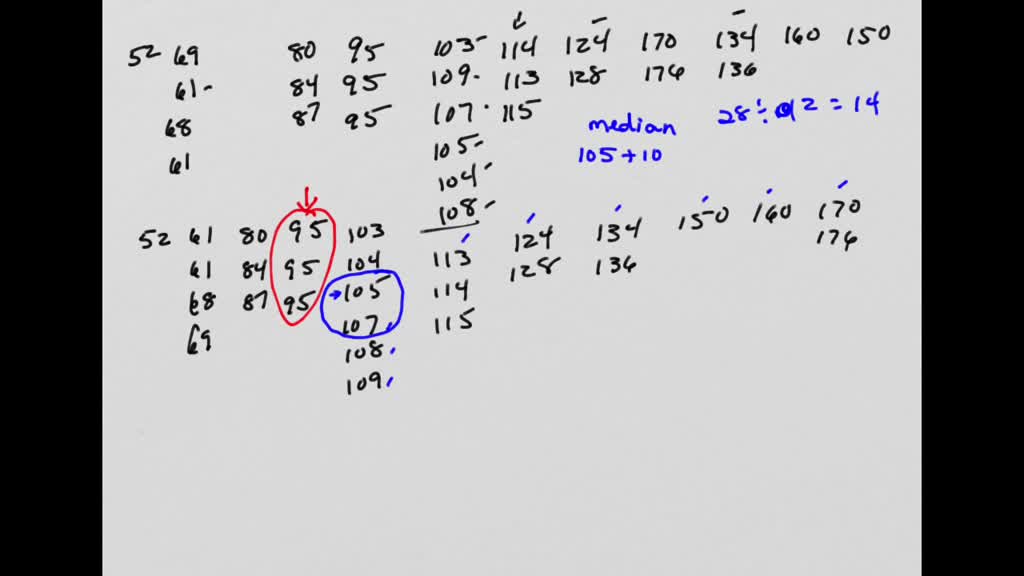 52 69 80 95 103 114 124 170 134 160 150
61 84 95 109 113 128 176 136
68 87 95 107 115
61 105
104
108
median
105 + 10
28 ÷ 2 = 14
52 61 80 95 103 113 124 134 150 160 170
61 84 95 104 114 128 136 176
68 87 95 105 115
69 107
108
109